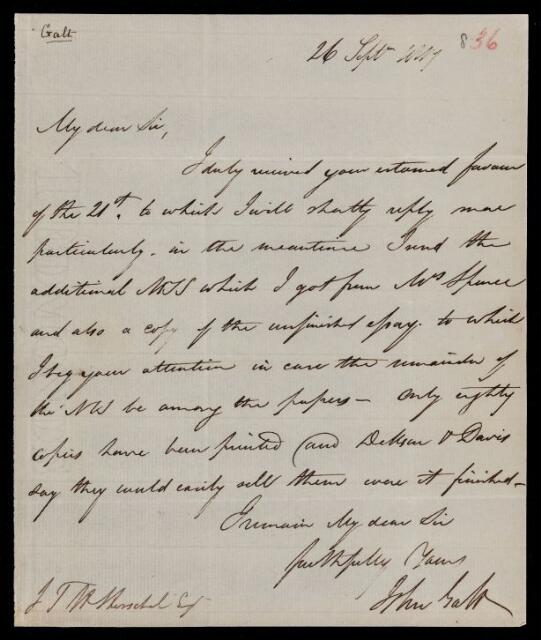 Galt
26 Septr
836
My dear Sir,
I duly received your esteemed favour
of the 21st. to which I will shortly reply more
particularly. in the meantime I send the
additional MSS which I got from Mrs Spence
and also a copy of the unfinished essay. to which
I beg your attention in case the remainder of
the MS be among the papers – only eighty
copies have been printed (and & Davis
say they could easily sell them were it finished –
I remain My dear Sir
faithfully Yours
John Galt
J F W Herschel Esq